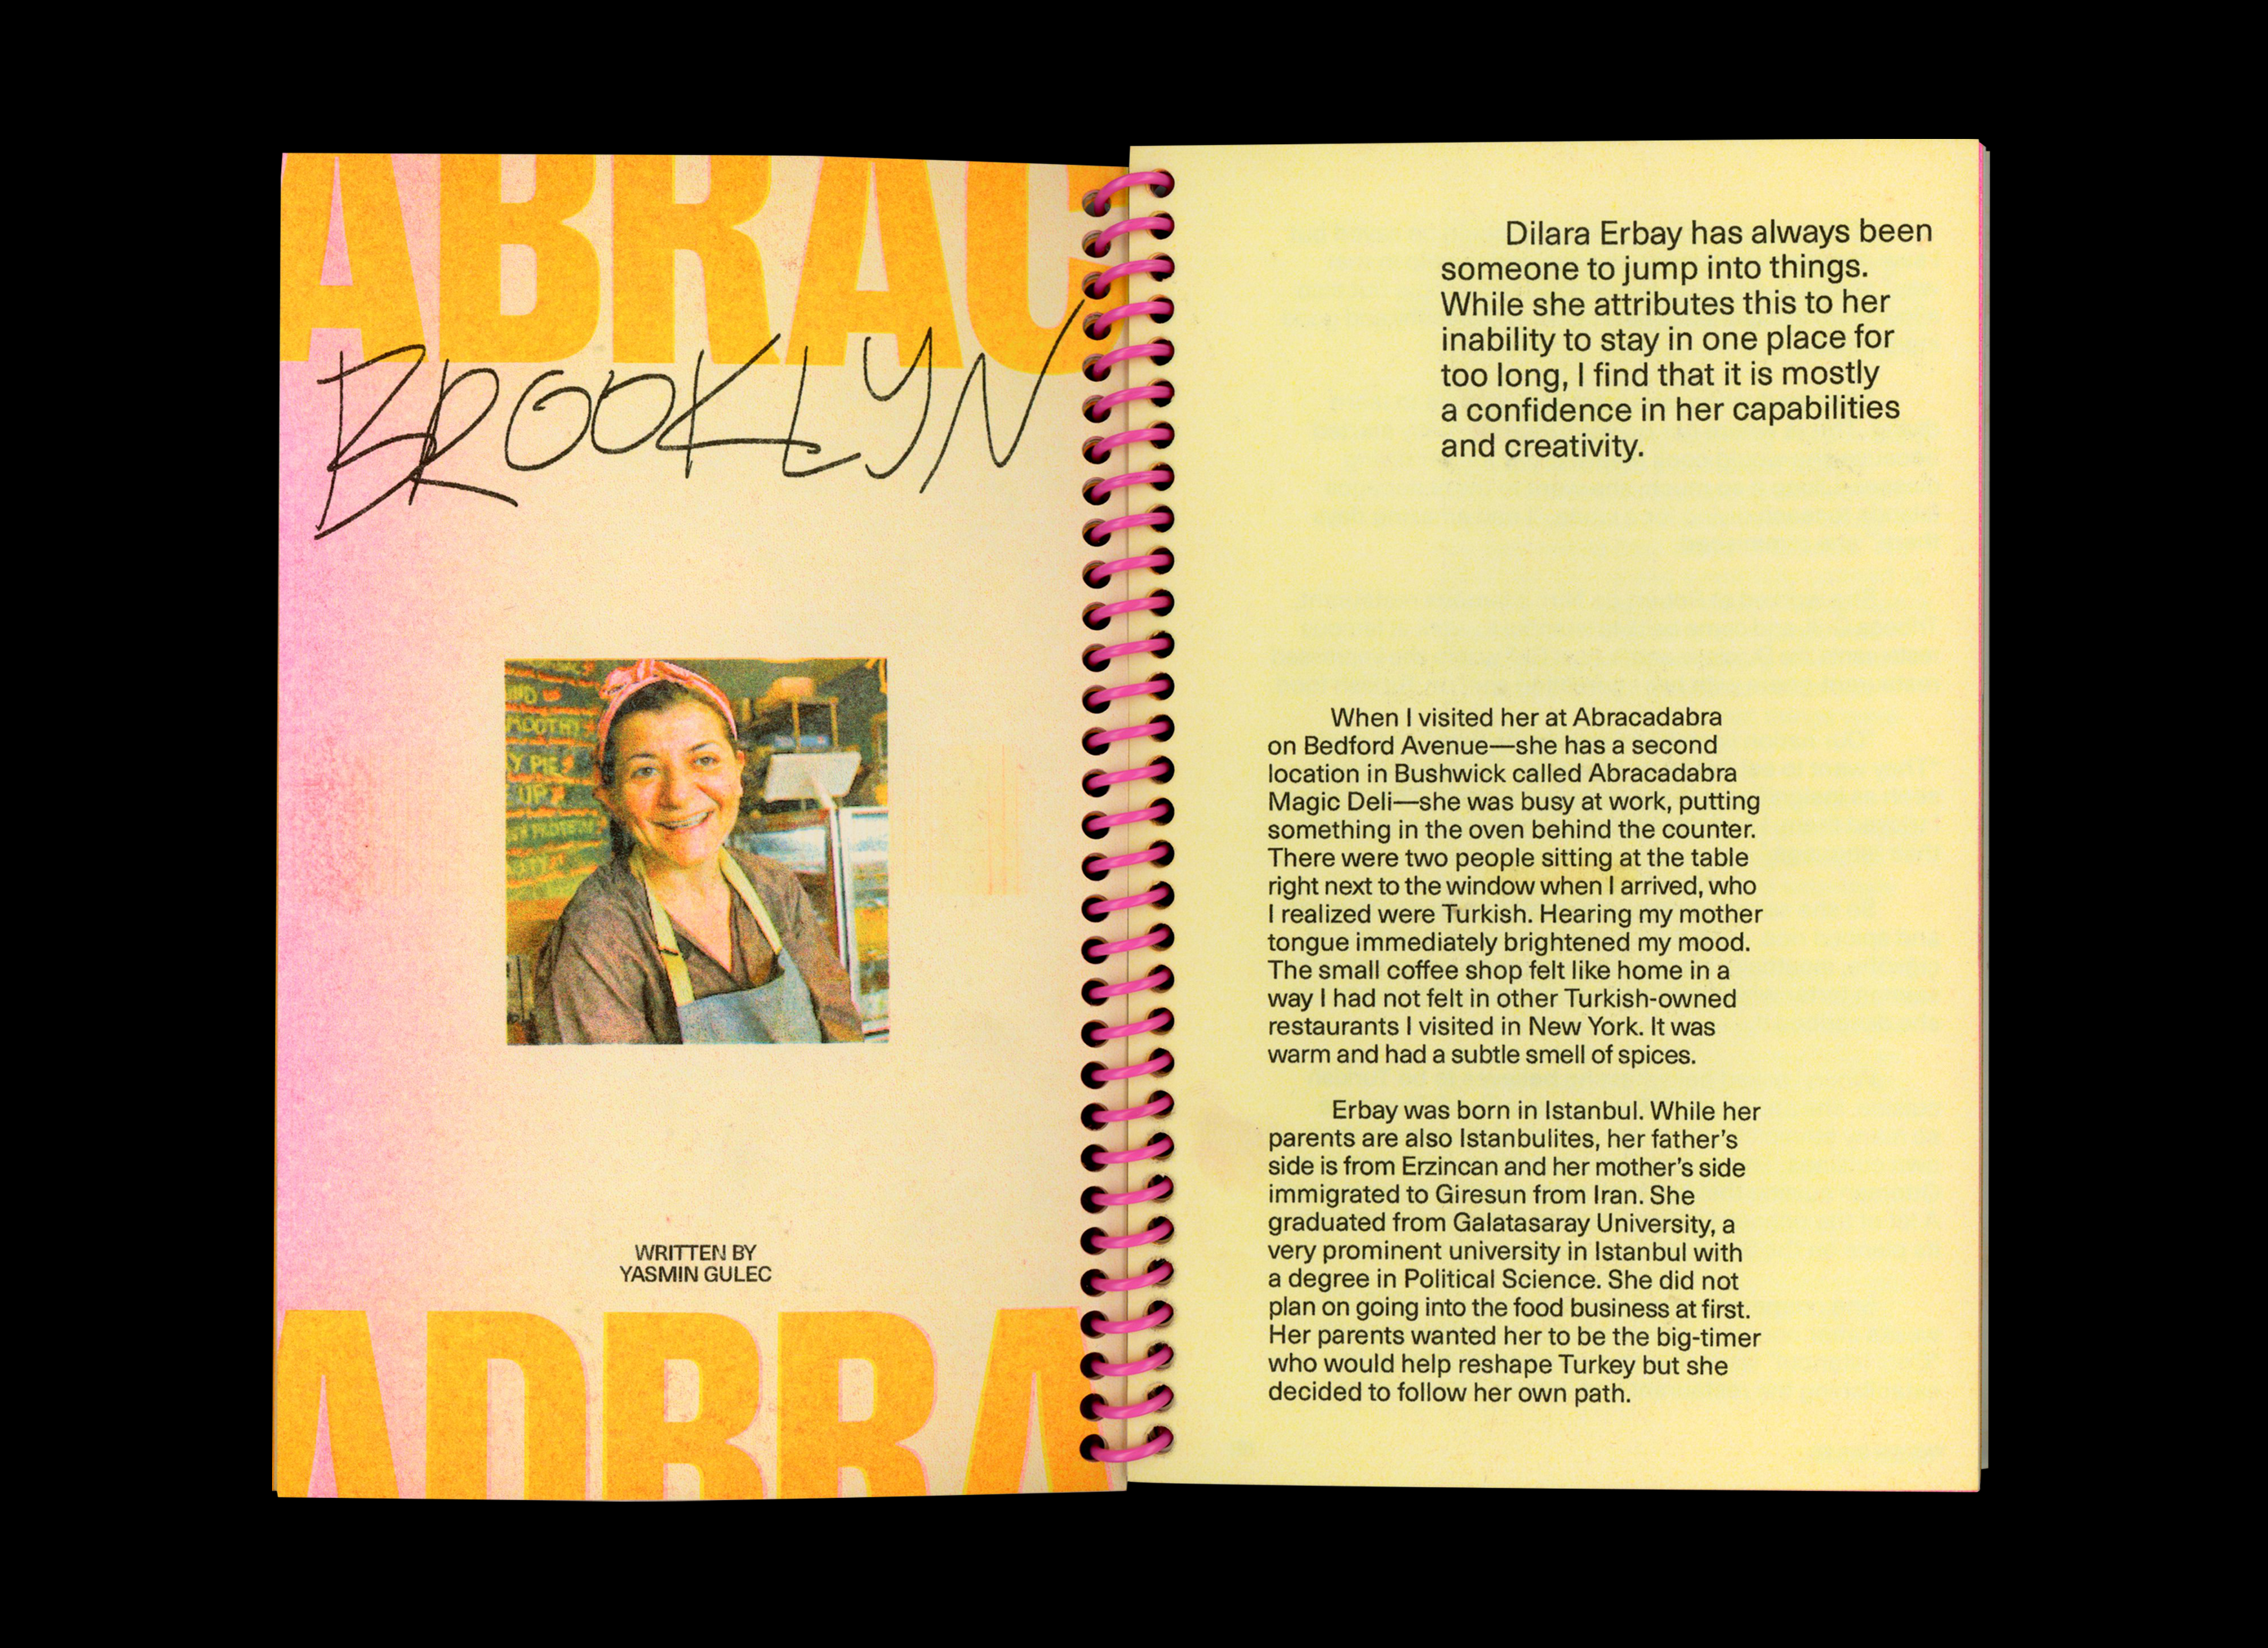 ABRAC
BROOKLYN
Y PIE
UP
WRITTEN BY
YASMIN GULEC
ADBRA
Dilara Erbay has always been
someone to jump into things.
While she attributes this to her
inability to stay in one place for
too long, I find that it is mostly
a confidence in her capabilities
and creativity.
When I visited her at Abracadabra
on Bedford Avenue—she has a second
location in Bushwick called Abracadabra
Magic Deli—she was busy at work, putting
something in the oven behind the counter.
There were two people sitting at the table
right next to the window when I arrived, who
I realized were Turkish. Hearing my mother
tongue immediately brightened my mood.
The small coffee shop felt like home in a
way I had not felt in other Turkish-owned
restaurants I visited in New York. It was
warm and had a subtle smell of spices.
Erbay was born in Istanbul. While her
parents are also Istanbulites, her father's
side is from Erzincan and her mother's side
immigrated to Giresun from Iran. She
graduated from Galatasaray University, a
very prominent university in Istanbul with
a degree in Political Science. She did not
plan on going into the food business at first.
Her parents wanted her to be the big-timer
who would help reshape Turkey but she
decided to follow her own path.